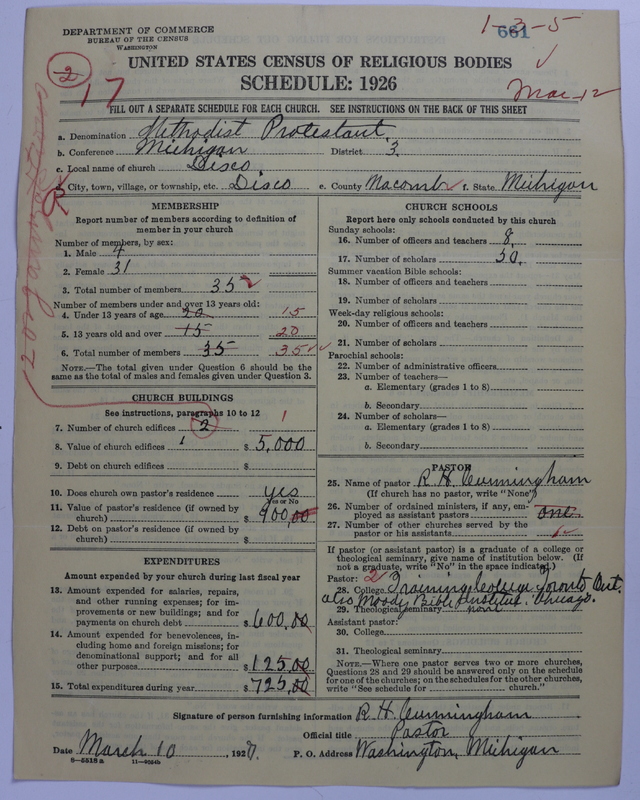 DEPARTMENT OF COMMERCE
BUREAU OF THE CENSUS
WASHINGTON
661
1-3-5
UNITED STATES CENSUS OF RELIGIOUS BODIES
SCHEDULE: 1926
2
17
Mar 12
FILL OUT A SEPARATE SCHEDULE FOR EACH CHURCH. SEE INSTRUCTIONS ON THE BACK OF THIS SHEET
a. Denomination Methodist Protestant
b. Conference Michigan District 3
c. Local name of church Disco
d. City, town, village, or township, etc. Disco e. County Macomb f. State Michigan
MEMBERSHIP
Report number of members according to definition of
member in your church
Number of members, by sex:
1. Male 4
2. Female 31
3. Total number of members 35
Number of members under and over 13 years old:
4. Under 13 years of age 20 15
5. 13 years old and over 15 20
6. Total number of members 35 35
NOTE.—The total given under Question 6 should be the
same as the total of males and females given under Question 3.
CHURCH BUILDINGS
See instructions, paragraphs 10 to 12
7. Number of church edifices 2 1
8. Value of church edifices $ 5,000
9. Debt on church edifices $
10. Does church own pastor's residence yes
Yes or No
11. Value of pastor's residence (if owned by
church) $ 900,00
12. Debt on pastor's residence (if owned by
church) $
EXPENDITURES
Amount expended by your church during last fiscal year
13. Amount expended for salaries, repairs,
and other running expenses; for im-
provements or new buildings; and for
payments on church debt $ 600,00
14. Amount expended for benevolences, in-
cluding home and foreign missions; for
denominational support; and for all
other purposes $ 125,00
15. Total expenditures during year $ 725,00
CHURCH SCHOOLS
Report here only schools conducted by this church
Sunday schools:
16. Number of officers and teachers 8.
17. Number of scholars 50.
Summer vacation Bible schools:
18. Number of officers and teachers
19. Number of scholars
Week-day religious schools:
20. Number of officers and teachers
21. Number of scholars
Parochial schools:
22. Number of administrative officers
23. Number of teachers—
a. Elementary (grades 1 to 8)
b. Secondary
24. Number of scholars—
a. Elementary (grades 1 to 8)
b. Secondary
PASTOR
25. Name of pastor R. H. Cunningham
(If church has no pastor, write "None")
26. Number of ordained ministers, if any, em-
ployed as assistant pastors one
27. Number of other churches served by the
pastor or his assistants 1
If pastor (or assistant pastor) is a graduate of a college or
theological seminary, give name of institution below. (If
not a graduate, write "No" in the space indicated.)
Pastor: 2
28. College Training College Toronto Ont.
also Moody Bible Institute. Chicago.
29. Theological seminary none
Assistant pastor:
30. College
31. Theological seminary
NOTE.—Where one pastor serves two or more churches,
Questions 28 and 29 should be answered only on the schedule
for one of the churches; on the schedules for the other churches,
write "See schedule for church."
Signature of person furnishing information R. H. Cunningham
Official title Pastor
Date March 10, 1927. P. O. Address Washington, Michigan
8—5518 a